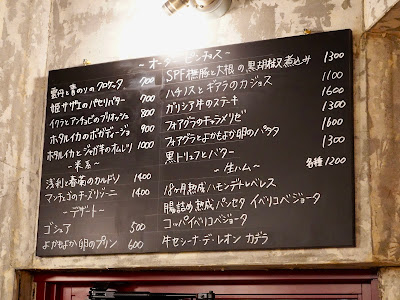 －オーダーピンチョス－
雲丹と青のりのクロケッタ 700
姫サザエのパセリバター 700
イクラとアンチョビのブリオッシュ 800
ホタルイカのボカディージョ 900
ホタルイカとジャガ芋のオムレツ 1000
－米系－
浅利と春菊のカルドソ 1400
マンチェゴのチーズリゾーニ 1400
－デザート－
ゴシュア 500
よかもよか卵のプリン 600
SPF 豚と大根の黒胡椒煮込み 1300
ハチノスとギアラのカジョス 1100
ガリシア牛のステーキ 1600
フォアグラのキャラメリゼ 1300
フォアグラとよかもよか卵のパタタ 1600
黒トリュフとバター 1300
－生ハム－ 各種1200
18ヶ月熟成ハモンデトレベレス
腸詰め熟成パンセタ イベリコベジョータ
コッパイベリコベジョータ
牛セシーナ・デ・レオン カデラ